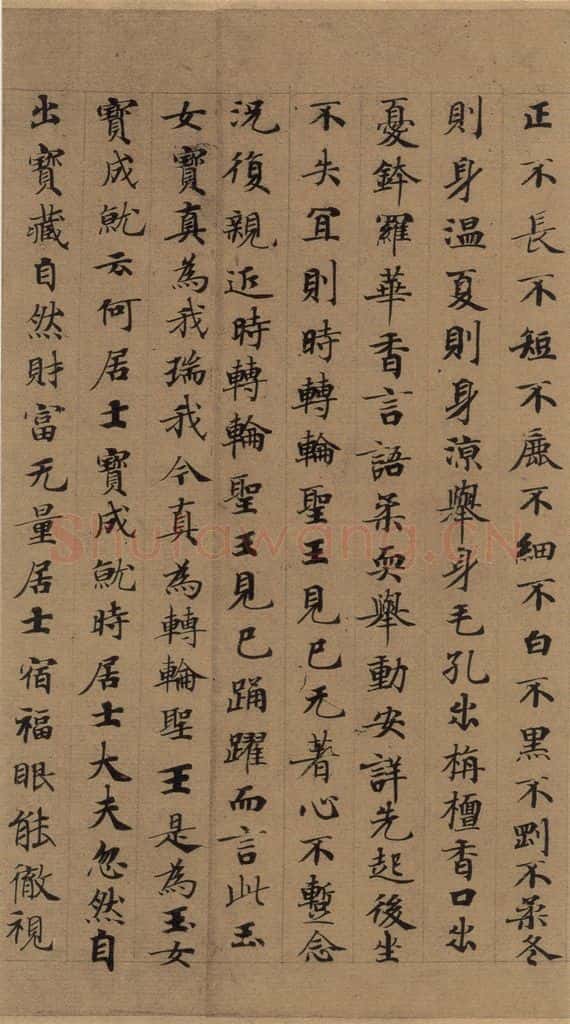 正不長不短不麁不細不白不黑不罡不柔冬
則身温夏則身涼舉身毛孔出栴檀香口出
憂鉢羅華香言語柔耎舉動安詳先起後坐
不失冝則時轉輪聖王見已无著心不蹔念
況復親近時轉輪聖王見已踊躍而言此玉
女寶真為我瑞我今真為轉輪聖王是為玉女
寶成就云何居士寶成就時居士大夫忽然自
出寶藏自然財富无量居士宿福眼能徹視
Shufawang.CN